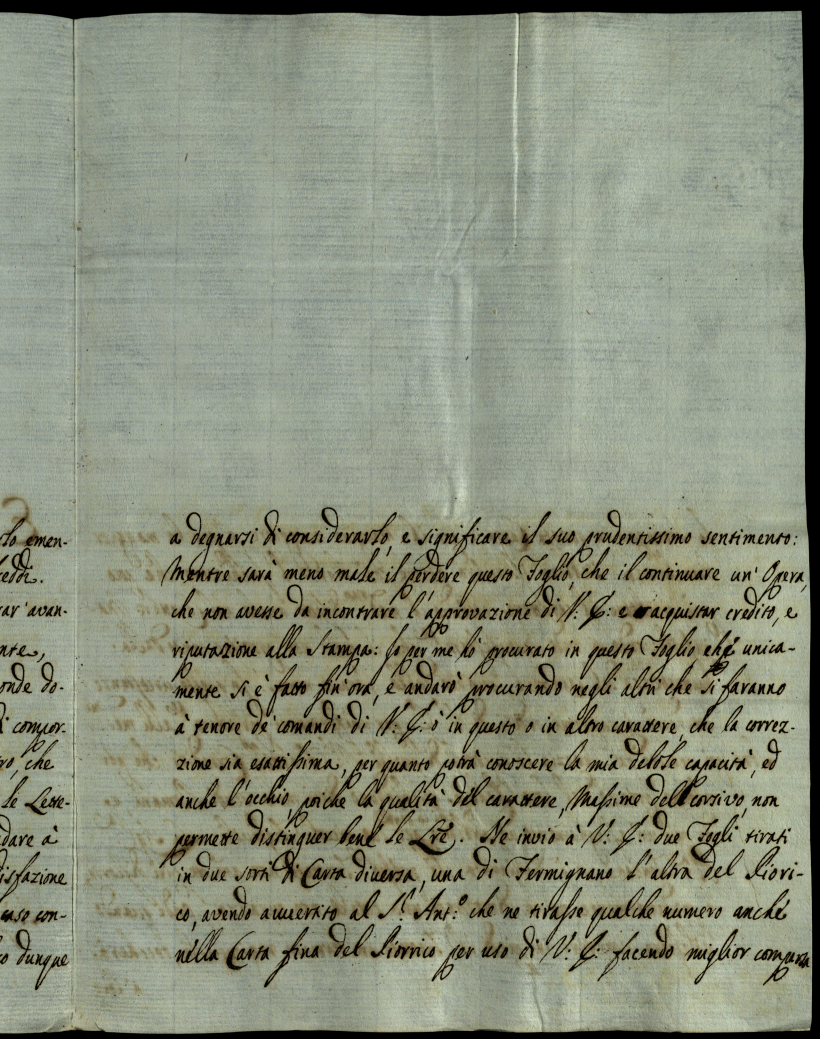 rlo emen-
cessi.
rar' avan-
nte,
onde do-
di compor-
ro, che
le Lette-
dare à
disfazione
caso con-
co dunque
a degnarsi di considerarlo, e significare il suo prudentissimo sentimento:
Mentre sarà meno male il perdere questo Foglio, che il continuare un' Opera,
che non avesse da incontrare l'approvazione di V: E: e acquistar credito, e
riputazione alla Stampa: Io per me hò procurato in questo Foglio che unica-
mente si è fatto fin' ora, e andarò procurando negli altri che si faranno
à tenore de' comandi di V: E: ò in questo o in altro carattere, che la correz-
zione sia esattissima, per quanto potrà conoscere la mia debole capacità, ed
anche l'occhio, poiche la qualità del carattere, Massime del corsivo, non
permette distinguer bene le Lre. Ne invio à V: E: due Fogli tirati
in due sorti di Carta diversa, una di Fermignano l'altra del Piori-
co, avendo avvertito al Sr. Ant:o che ne tirasse qualche numero anche
nella Carta fina del Piorrico per uso di V: E: facendo miglior comparsa